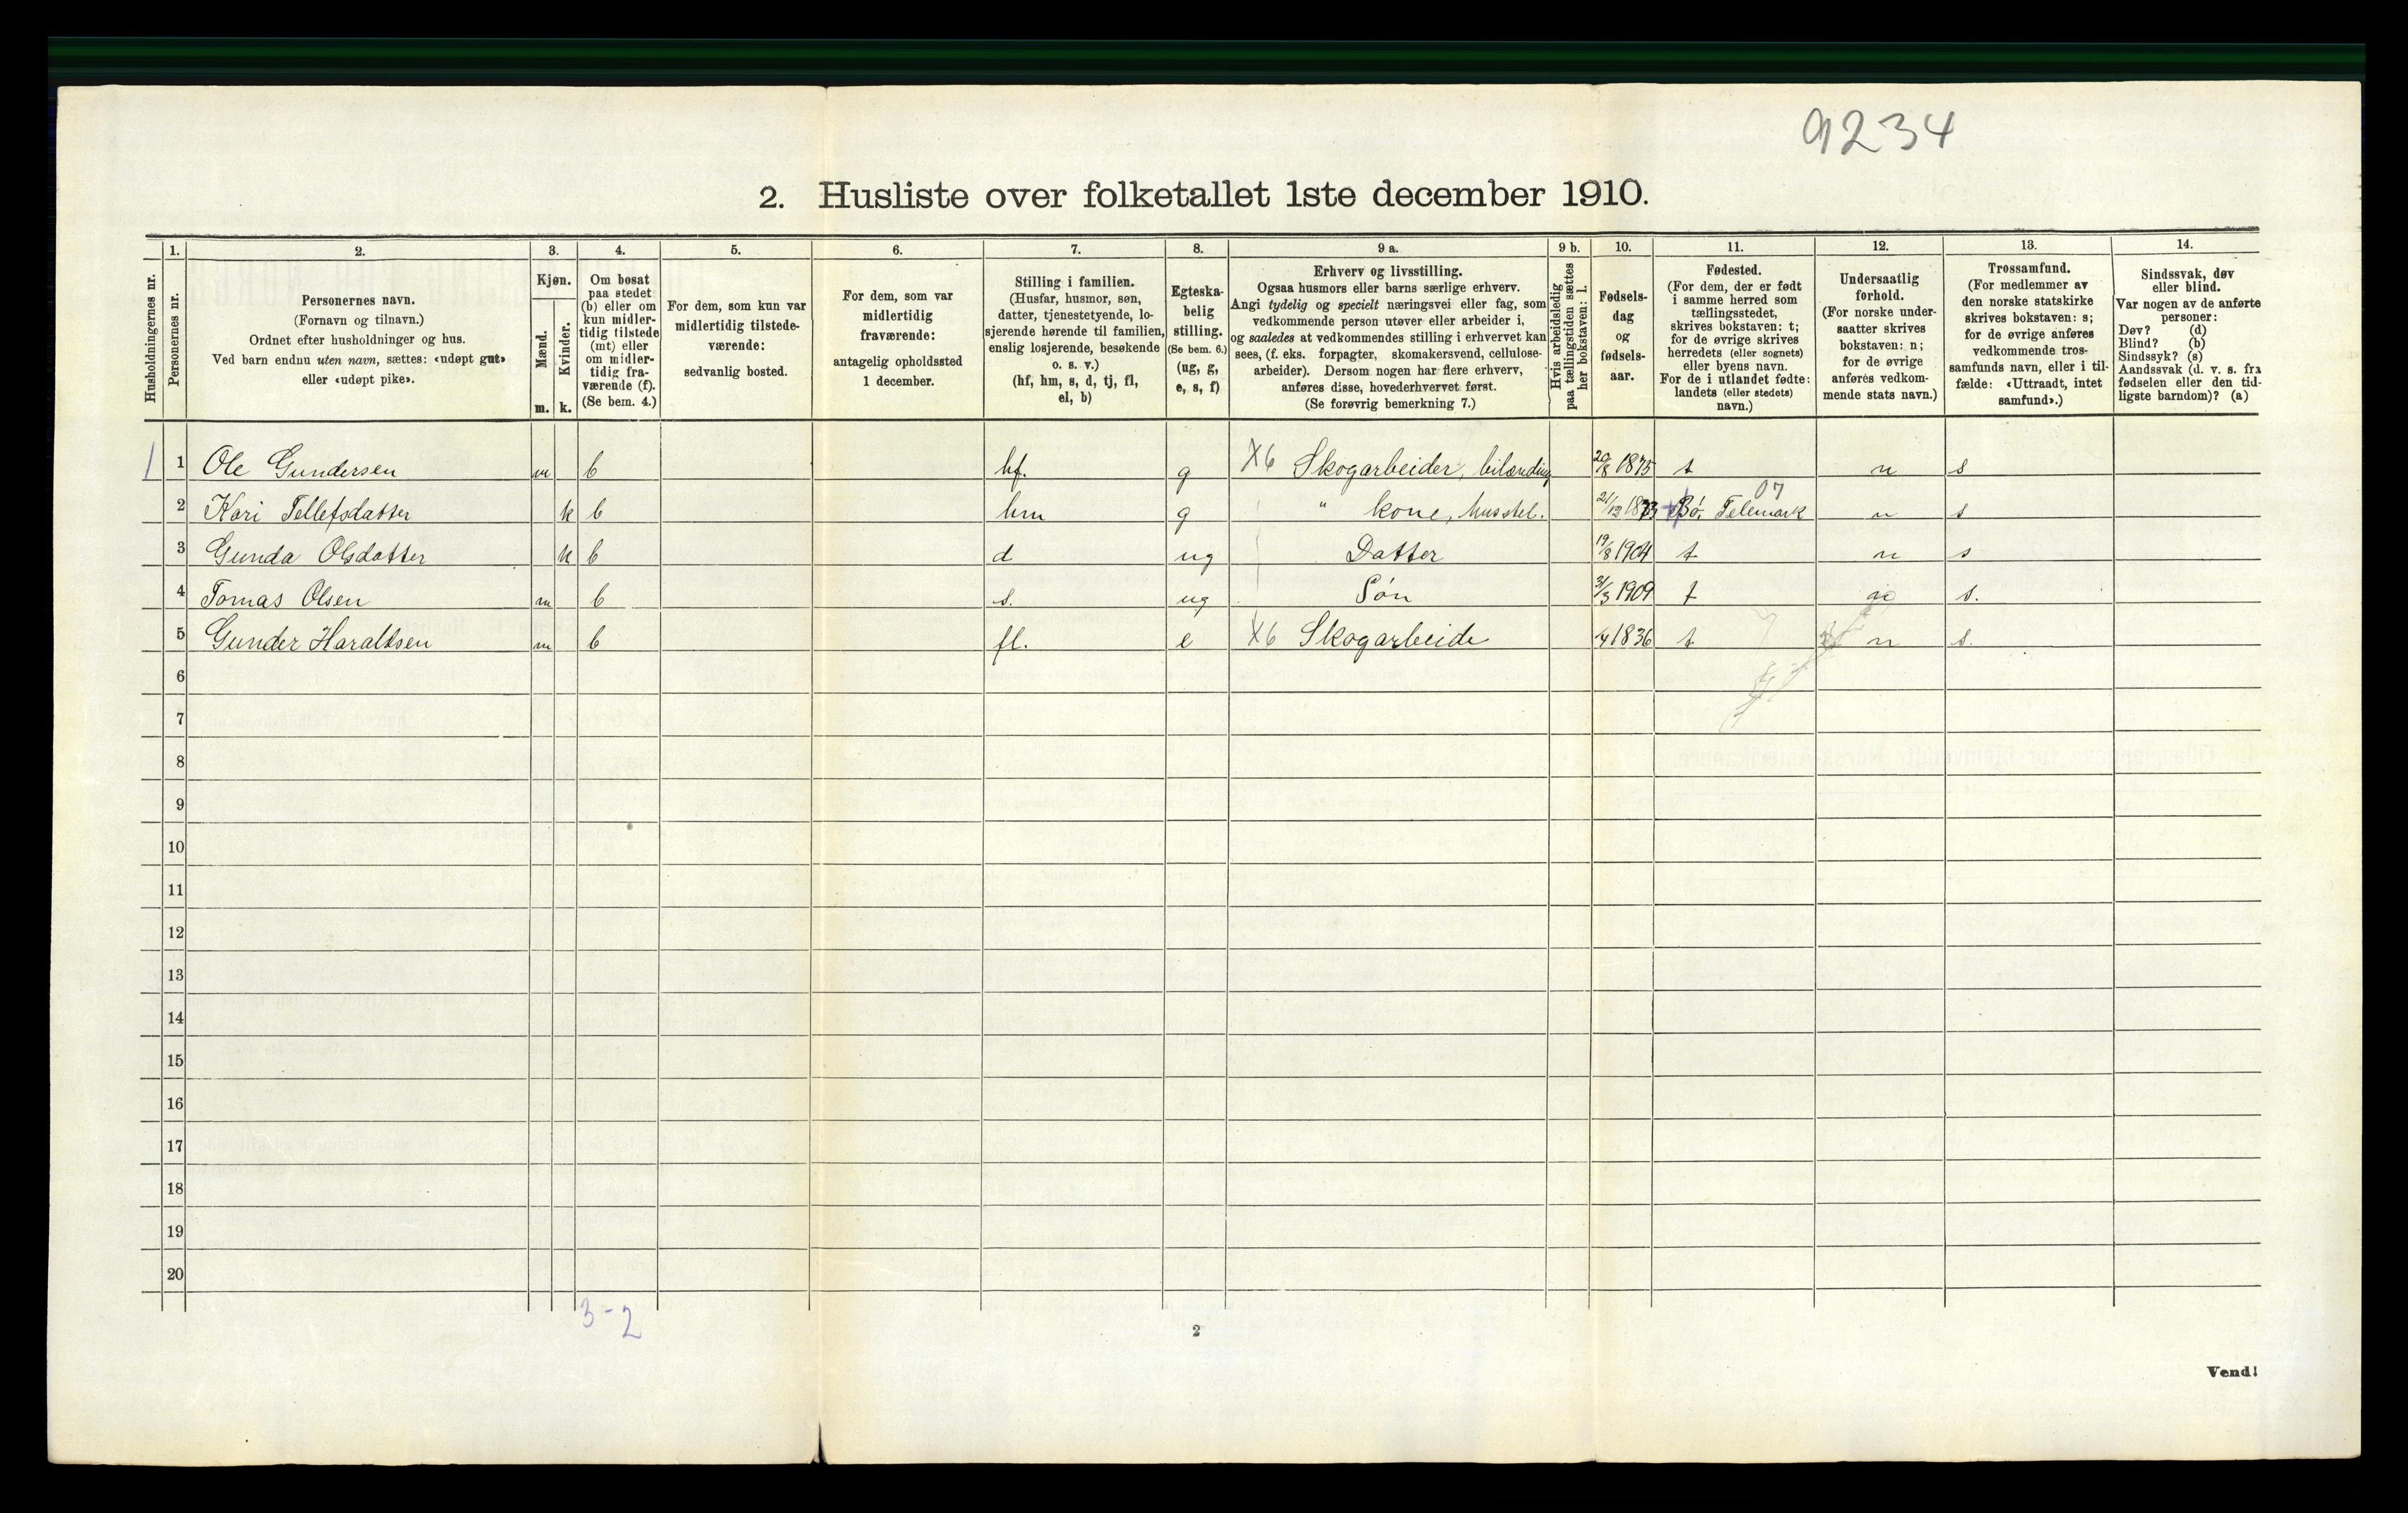 9234
2. Husliste over folketallet 1ste december 1910.
Husholdningernes nr.
1.
Personernes nr.
2.
Personernes navn.
(Fornavn og tilnavn.)
Ordnet efter husholdninger og hus.
Ved barn endnu uten navn, sættes: «udøpt gut»
eller «udøpt pike».
3.
Kjøn.
Mænd.
Kvinder.
m. k.
4.
Om bosat
paa stedet
(b) eller om
kun midler-
tidig tilstede
(mt) eller
om midler-
tidig fra-
værende (f).
(Se bem. 4.)
5.
For dem, som kun var
midlertidig tilstede-
værende:
sedvanlig bosted.
6.
For dem, som var
midlertidig
fraværende:
antagelig opholdssted
1 december.
7.
Stilling i familien.
(Husfar, husmor, søn,
datter, tjenestetyende, lo-
sjerende hørende til familien,
enslig losjerende, besøkende
o. s. v.)
(hf, hm, s, d, tj, fl,
el, b)
8.
Egteska-
belig
stilling.
(Se bem. 6.)
(ug, g,
e, s, f)
9 a.
Erhverv og livsstilling.
Ogsaa husmors eller barns særlige erhverv.
Angi tydelig og specielt næringsvei eller fag, som
vedkommende person utøver eller arbeider i,
og saaledes at vedkommendes stilling i erhvervet kan
sees, (f. eks. forpagter, skomakersvend, cellulose-
arbeider). Dersom nogen har flere erhverv,
anføres disse, hovederhvervet først.
(Se forøvrig bemerkning 7.)
9 b.
Hvis arbeidsledig
paa tællingstiden sættes
her bokstaven: l.
10.
Fødsels-
dag
og
fødsels-
aar.
11.
Fødested.
(For dem, der er født
i samme herred som
tællingsstedet,
skrives bokstaven: t;
for de øvrige skrives
herredets (eller sognets)
eller byens navn.
For de i utlandet fødte:
landets (eller stedets)
navn.)
12.
Undersaatlig
forhold.
(For norske under-
saatter skrives
bokstaven: n;
for de øvrige
anføres vedkom-
mende stats navn.)
13.
Trossamfund.
(For medlemmer av
den norske statskirke
skrives bokstaven: s;
for de øvrige anføres
vedkommende tros-
samfunds navn, eller i til-
fælde: «Uttraadt, intet
samfund».)
14.
Sindssvak, døv
eller blind.
Var nogen av de anførte
personer:
Døv? (d)
Blind? (b)
Sindssyk? (s)
Aandssvak (d. v. s. fra
fødselen eller den tid-
ligste barndom)? (a)
1 1 Ole Gundersen m b hf. g X6 Skogarbeider, bilænding 20/8 1875 t n s
07
2 Kari Tellefsdatter k b hm g " kone, husstel. 21/12 1873 Bø, Telemark n s
3 Gunda Olsdatter k b d ug Datter 19/8 1904 t n s
4 Tomas Olsen m b s. ug Søn 31/3 1909 t n s.
5 Gunder Haraldsen m b fl. e X6 Skogarbeide 1836 t n s.
6
7
8
9
10
11
12
13
14
15
16
17
18
19
20
3-2
2
Vend!